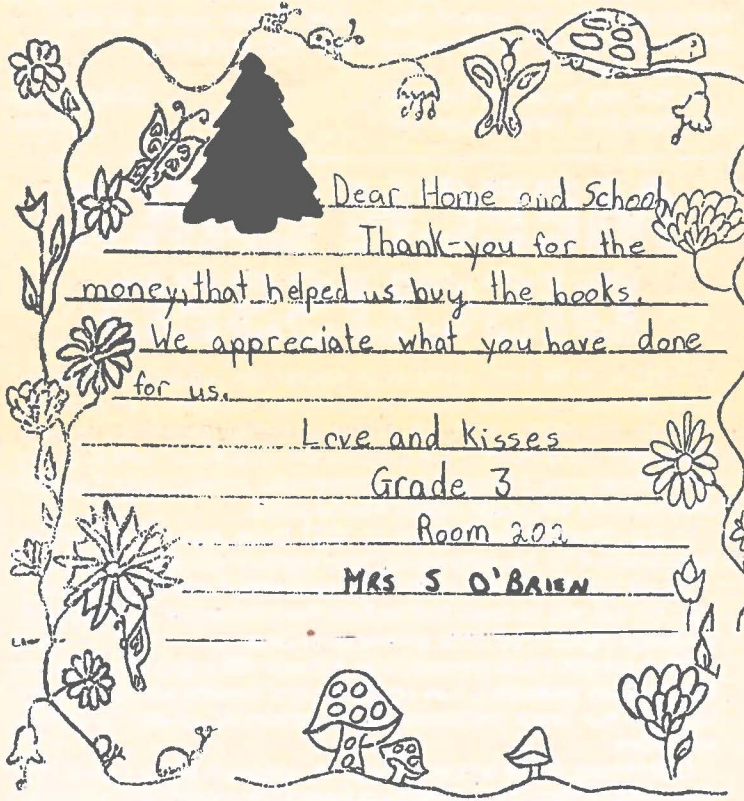 Dear Home and School
Thank-you for the
money, that helped us buy the books.
We appreciate what you have done
for us.
Love and Kisses
Grade 3
Room 202
MRS S O'BRIEN